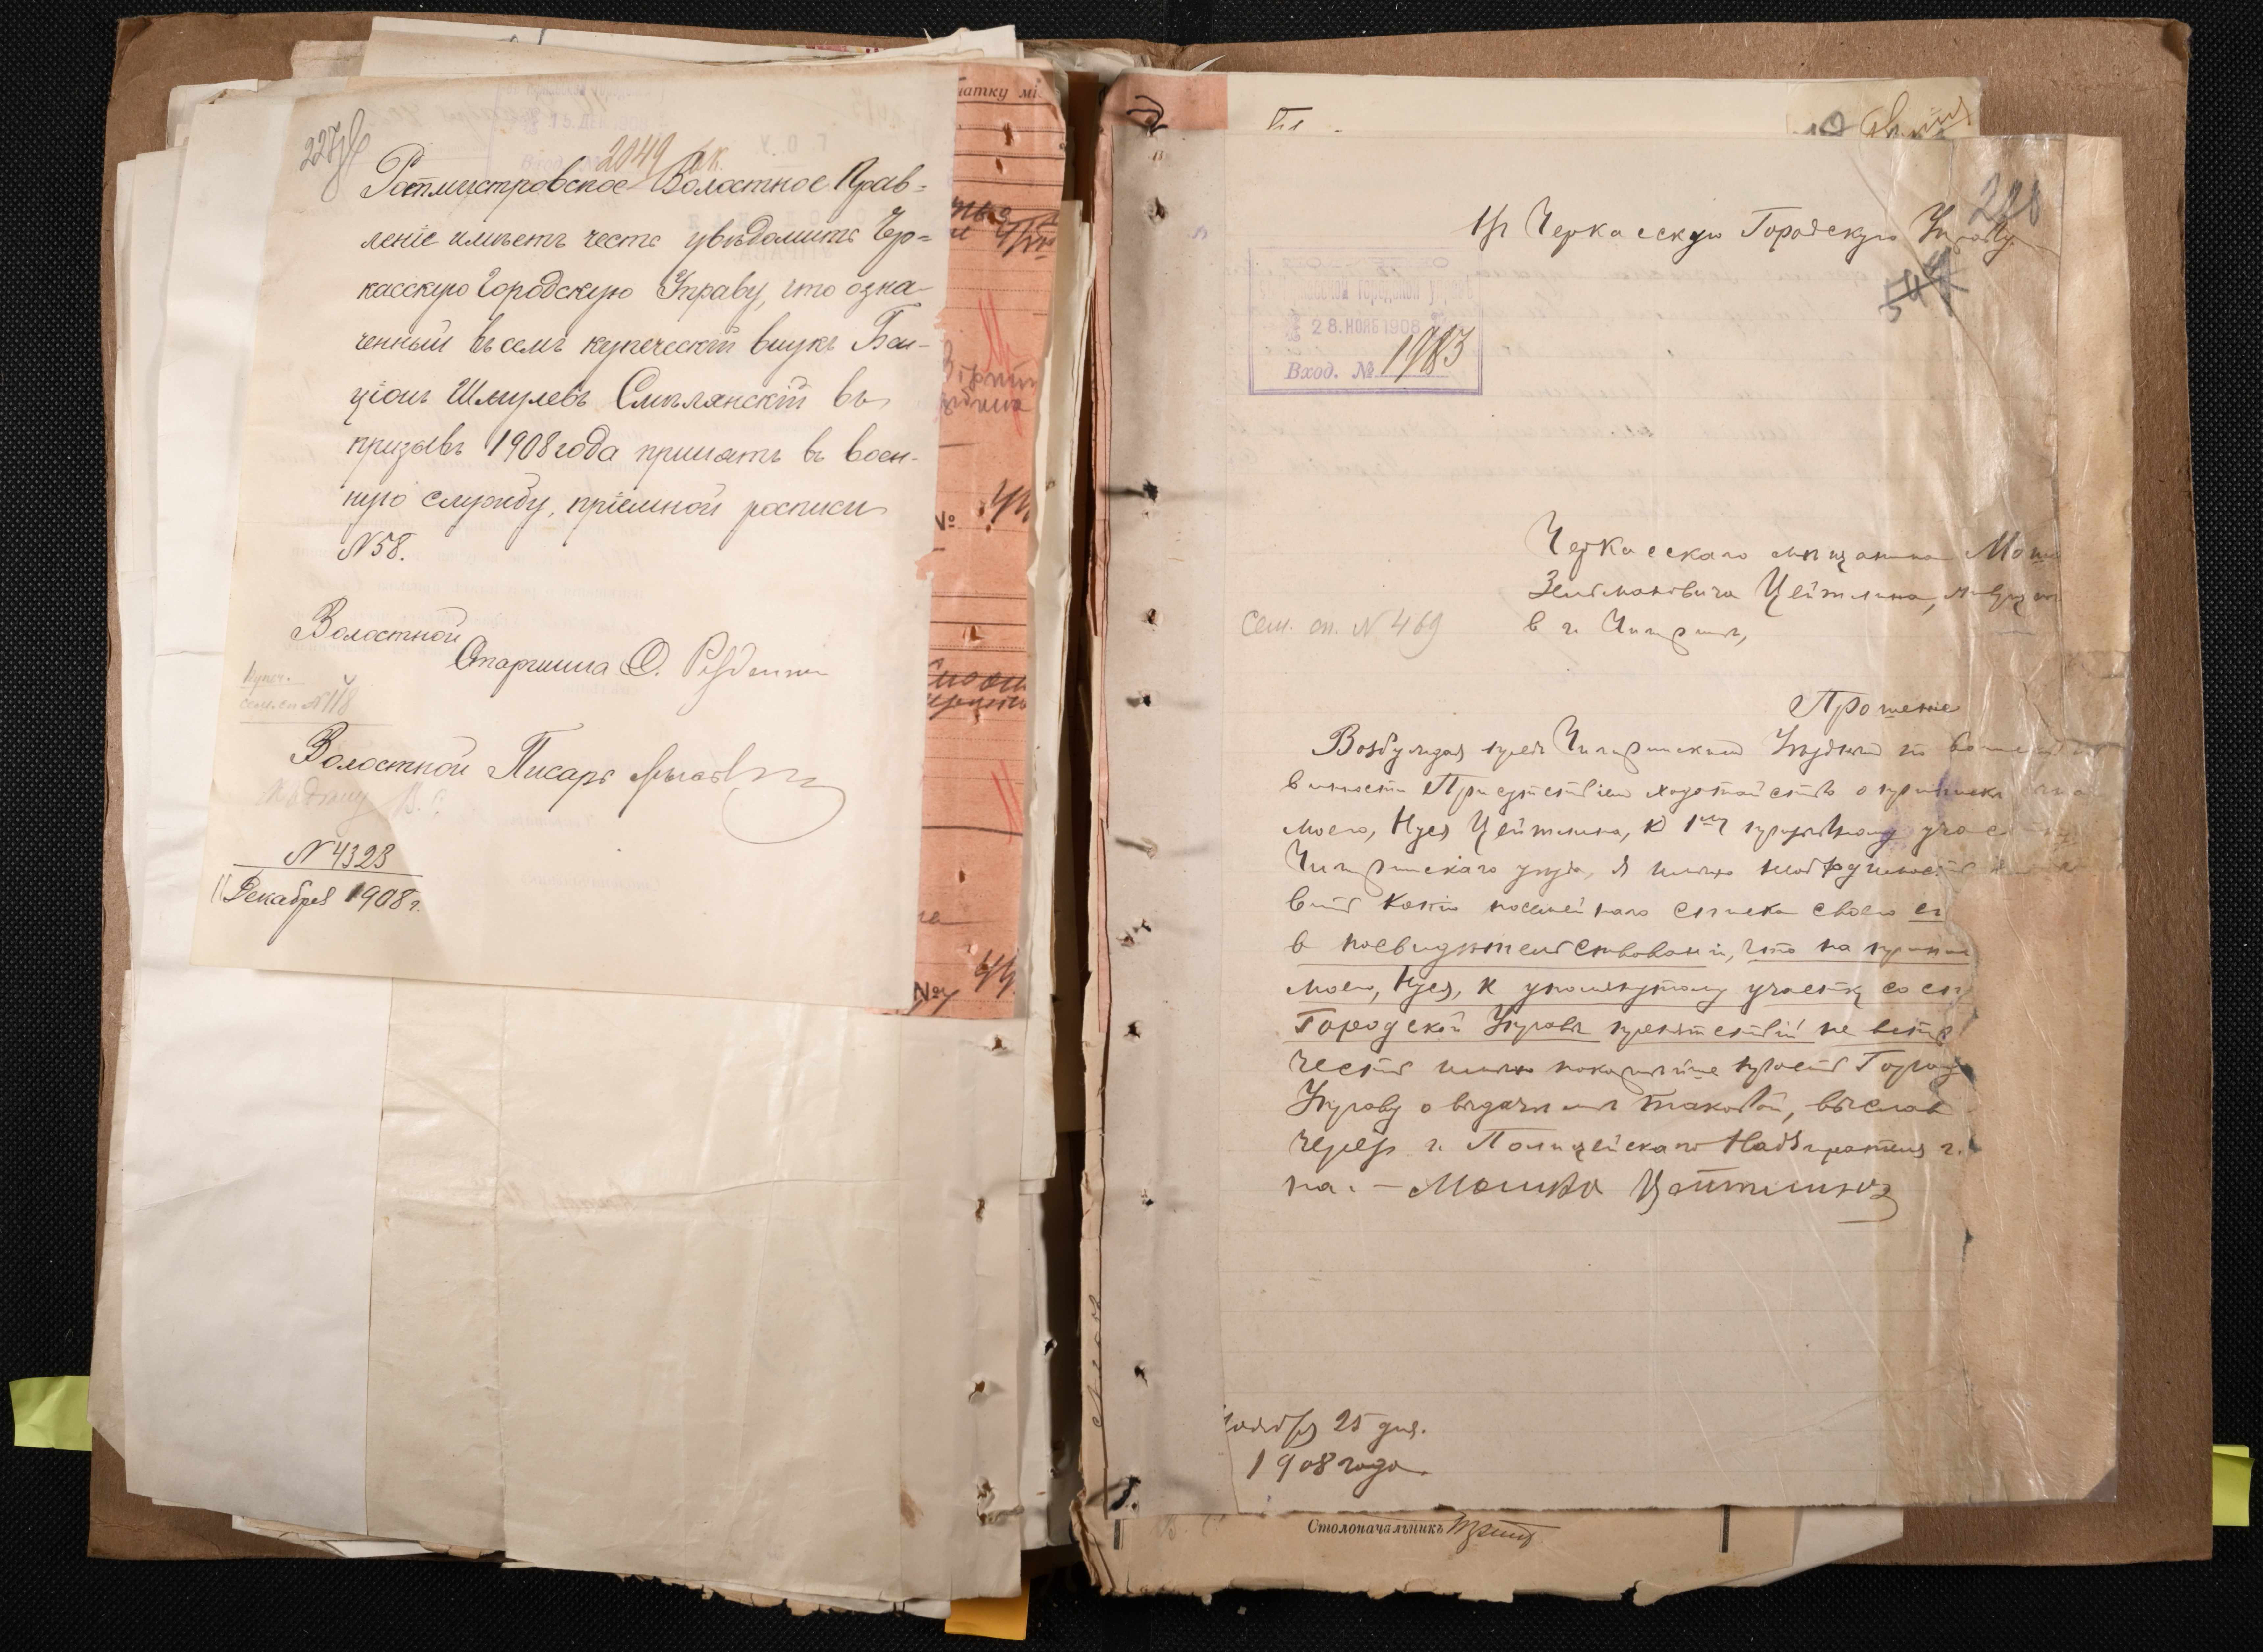 2049
Ротмистровское Волостное Прав=
леніе имѣетъ честь увѣдомить Чер=
касскую Городскую Управу, что озна-
ченный въ семъ купеческій внукъ Бен-
ціонъ Шмулевъ Смѣлянскій въ
призывъ 1908 года принятъ въ воен-
ную службу, пріемной росписи
N 58.
Волостной
Старшина
Купеч.
сем. сп. N 118
Волостной Писарь
N 4328
11 Декабря 1908 г.
атку мі
№
№
228
Въ Черкасскую Городскую Управу
547
городской
28. НОЯБ 1908
Вход. № 1983
Черкасскаго мѣщанина
Зельмановича Цейтлина,
в г. Чигиринѣ,
Сем. сп. N 469
Прошеніе
Возбуждая предъ Чигиринскимъ Уѣзднымъ по
винности Присутствіемъ ходатайство о припискѣ
моего, Нуся Цейтлина, к 1му призывному
Чигиринскаго уѣзда, я имѣю надобность
копію посемейнаго списка своего
в посвидѣтельствованіи, что на припис
моего, Нуся, к упомянутому участку со ст
Городской Управы препятствій не встр
честь имѣю покорнѣйше просить Город
Управу о выдачѣ мнѣ таковой, выслав
черезъ г. Полицейскаго Надзирателя г.
на. – Мошко Цейтлинъ
Ноября 25 дня.
1908 года.
Столоначальникъ